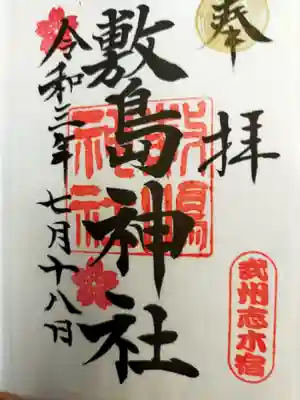 奉
拝
敷島神社
令和二年七月十八日
敷島神社
武州志木宿